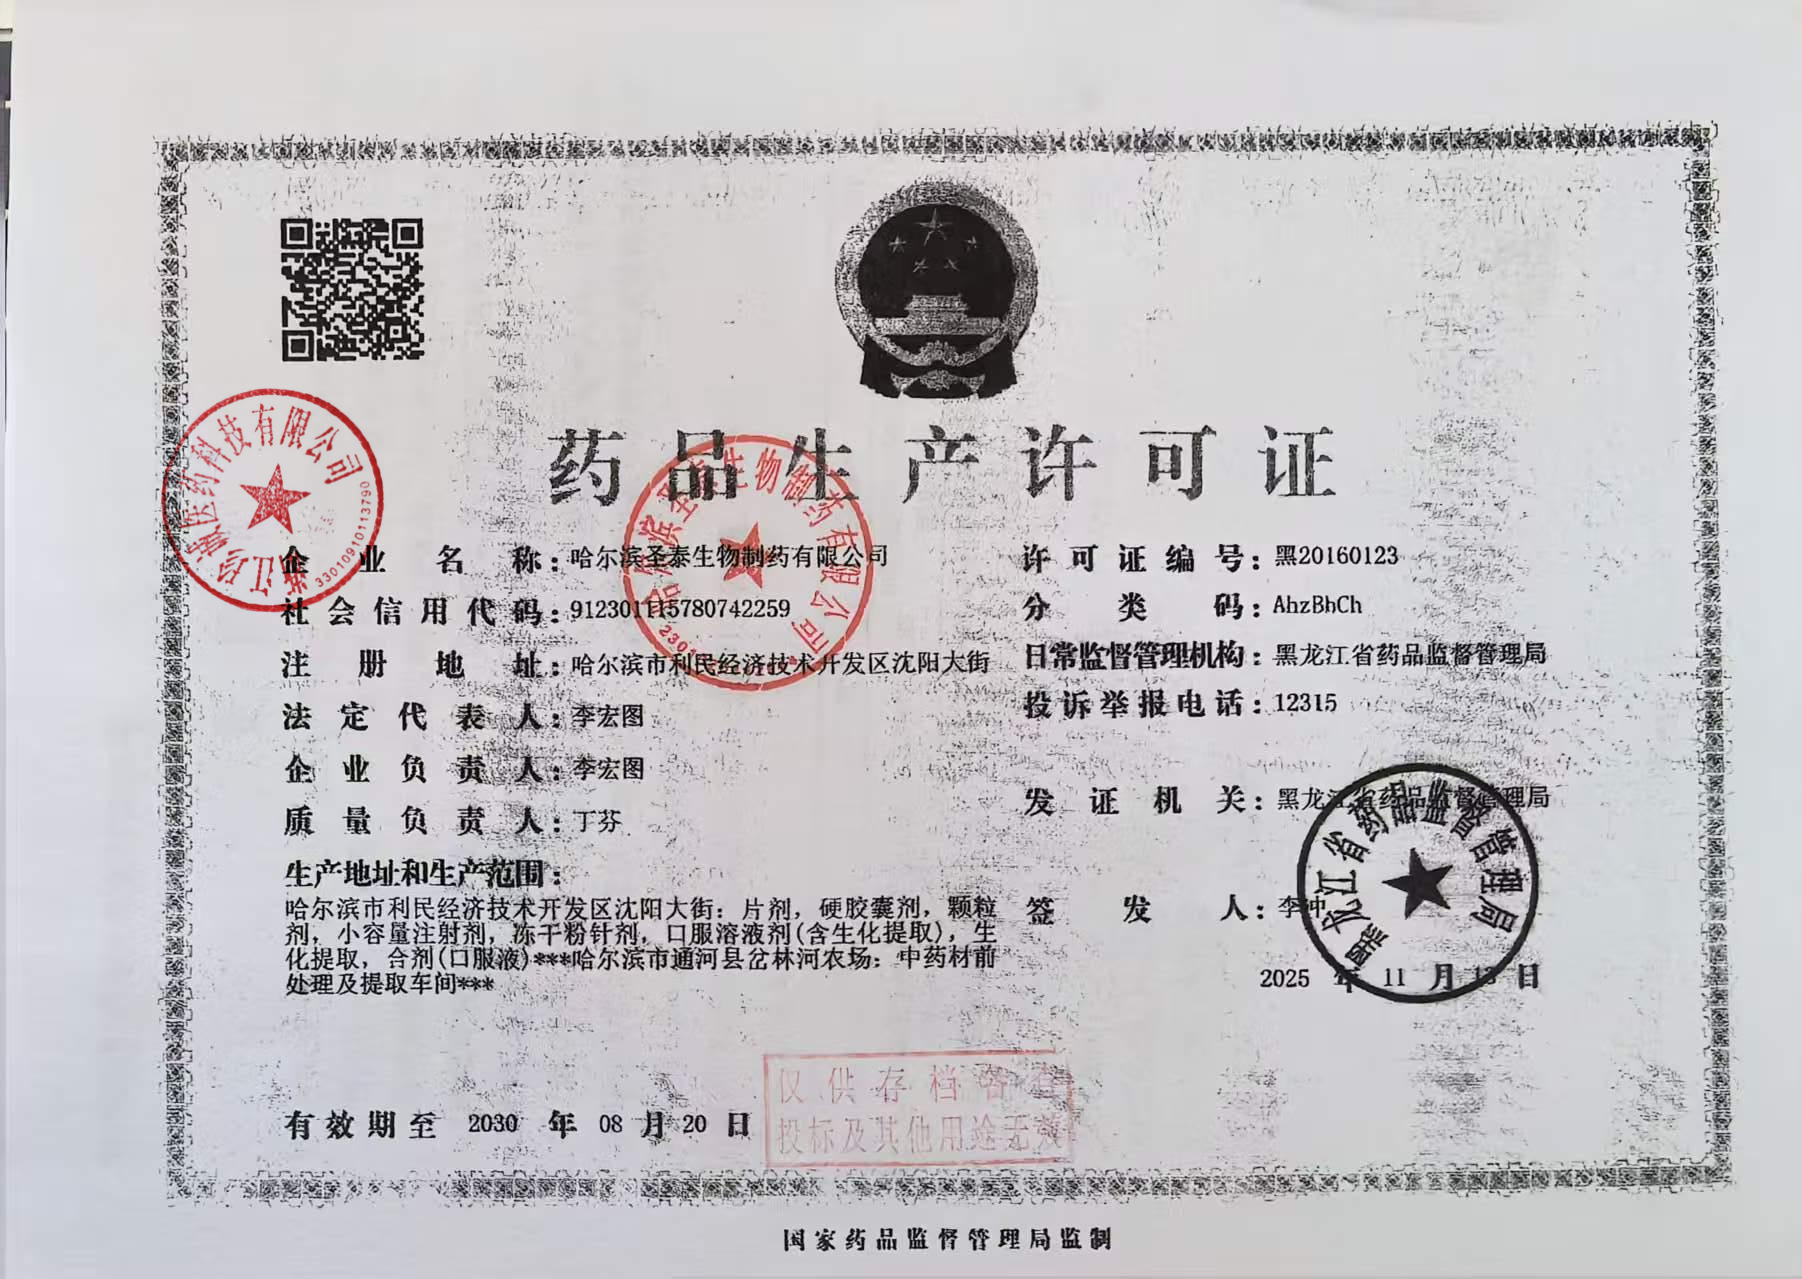 药品生产许可证
企业名称：哈尔滨圣泰生物制药有限公司
社会信用代码：912301115780742259
注册地址：哈尔滨市利民经济技术开发区沈阳大街
法定代表人：李宏图
企业负责人：李宏图
质量负责人：丁芬
生产地址和生产范围：
哈尔滨市利民经济技术开发区沈阳大街：片剂，硬胶囊剂，颗粒
剂，小容量注射剂，冻干粉针剂，口服溶液剂(含生化提取)，生
化提取，合剂(口服液)***哈尔滨市通河县岔林河农场：中药材前
处理及提取车间***
有效期至 2030 年 08 月 20 日
许可证编号：黑20160123
分类码：AhzBhCh
日常监督管理机构：黑龙江省药品监督管理局
投诉举报电话：12315
发证机关：黑龙江省药品监督管理局
签发人：李冲
2025 年 11 月 13 日
黑龙江省药品监督管理局
哈尔滨圣泰生物制药有限公司
医药科技有限公司
33010910113790
仅供存档备查
投标及其他用途无效
国家药品监督管理局监制